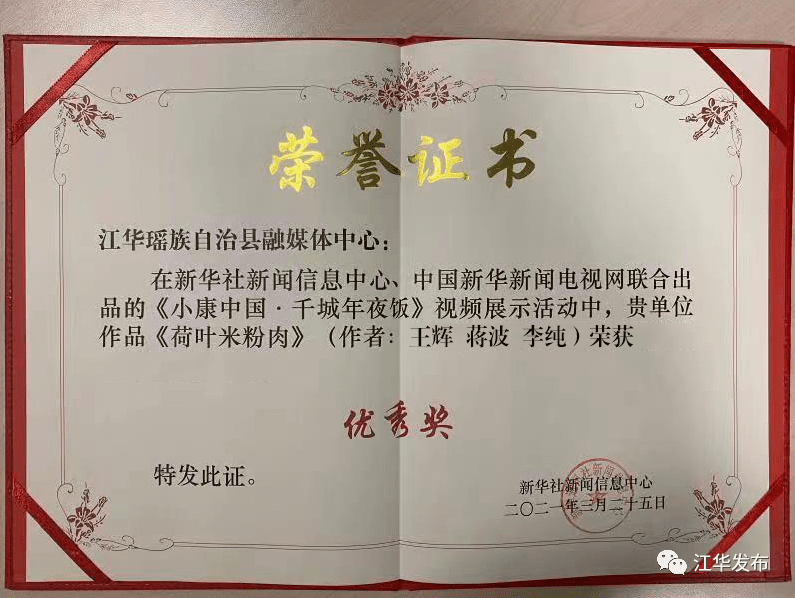 荣誉证书
江华瑶族自治县融媒体中心：
在新华社新闻信息中心、中国新华新闻电视网联合出
品的《小康中国·千城年夜饭》视频展示活动中，贵单位
作品《荷叶米粉肉》（作者：王辉 蒋波 李纯）荣获
优秀奖
特发此证。
新华社新闻信息中心
二〇二一年三月二十五日
江华发布